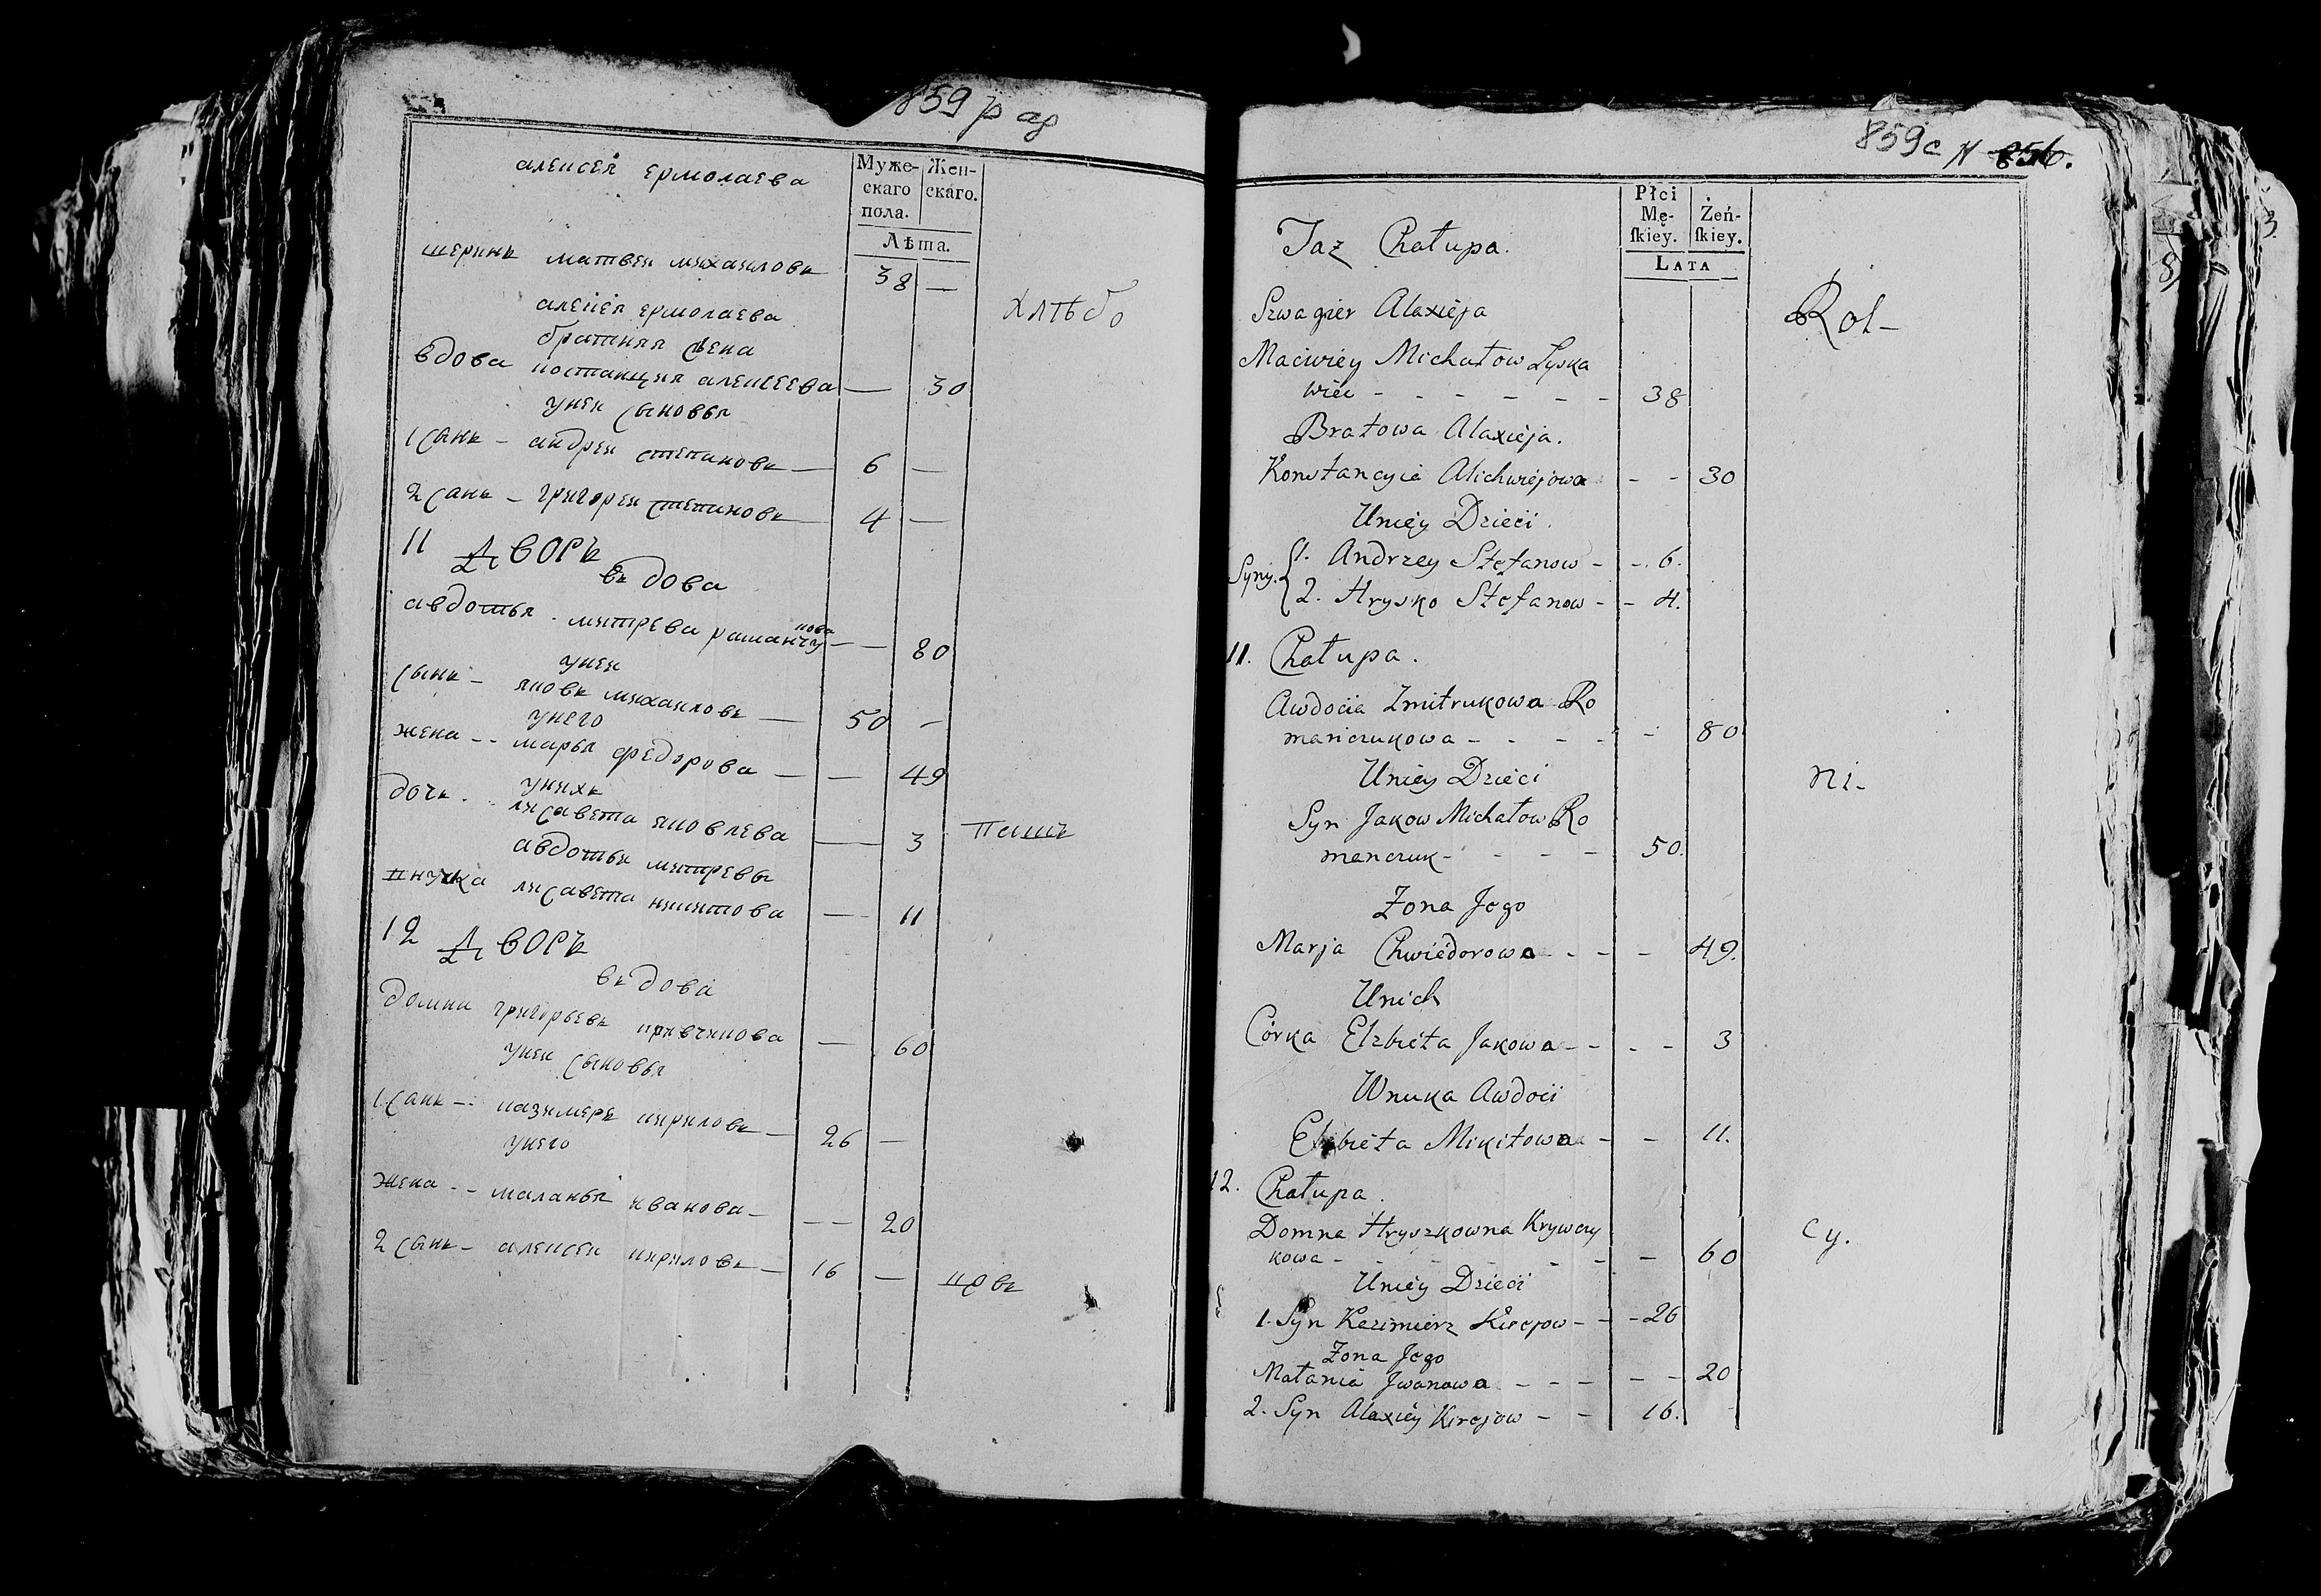 859 р об
алексея ермолаева
Муже-
скаго
пола.
Жен-
скаго.
Лѣта.
шуринъ матвеи михаиловъ 38 —
алексея ермолаева
братняя жена
вдова костанция алексеева — 30
унеи сыновья
1 сынъ – андреи степановъ — 6 —
2 сынъ – григореи степановъ — 4 —
хлѣбо
11 дворъ
въдова
авдотья митрева раманчу
кова — — 80
унеи
сынъ – яковъ михаиловъ — 50 –
унего
жена -- марья федорова — — 49
унихъ
дочь лисавета яковлева — 3
пашъ
авдотьи митревы
внучка лисавета никитова — 11
12 дворъ
въдова
домна григорьевъ кривчикова — 60
унеи сыновья
1 сынъ -- казимеръ кириловъ — 26 —
унего
жена -- маланья иванова — — 20
2 сынъ – алексеи кириловъ — 16 —
цовъ
859c N 856.
Płci
Mę-
ſkiey.
Żeń-
ſkiey.
LATA
Taz Chałupa.
Szwagier Alaxieja
Maciwiey Michałow Łyska
wiec - - - - - - 38
Rol-
Bratowa Alaxieja.
Konstancyia Alichwiejowa - - 30
Uniey Dzieci.
Syny. 1. Andrzey Stefanow - - 6.
2. Hrysko Stefanow - - 4.
11. Chałupa.
Awdocia Zmitrukowa Ro
manczukowa - - - - - 80
Uniey Dzieci
ni-
Syn Jakow Michałow Ro
manczuk - - - - 50.
Zona Jego
Marja Chwiedorowa - - - 49.
Unich
Córka Elzbieta Jakowa - - - - 3
Wnuka Awdoci
Elzbieta Mikitowa - - 11.
12. Chałupa.
Domna Hryszkowna Krywczy
kowa - - - - - - 60
cy.
Uniey Dzieci
1. Syn Kazimierz Kirejow - - - 26
Zona Jego
Małania Jwanowa - - - - - 20
2. Syn Alaxiey Kirejow - - 16.